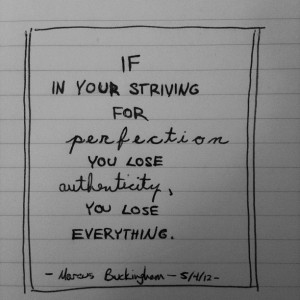 IF
IN YOUR STRIVING
FOR
perfection
YOU LOSE
authenticity,
YOU LOSE
EVERYTHING.
- Marcus Buckingham - 5/4/12 -